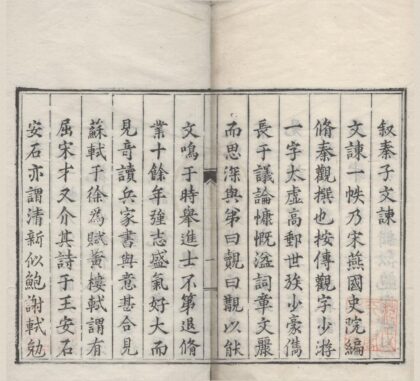 叙秦子文諫
文諫一帙乃宋蒹國史院編
脩秦觀撰也按傳觀字少游
一字太虛高郵世族少豪儁
長于議論慷慨溢詞章文麗
而思深與第曰覿曰覯以能
文鳴于時舉進士不第退脩
業十餘年強志盛氣好大而
見竒讀兵家書與意甚合見
蘇軾于徐為賦黃樓軾謂有
屈宋才又介其詩于王安石
安石亦謂清新似鮑謝軾勉